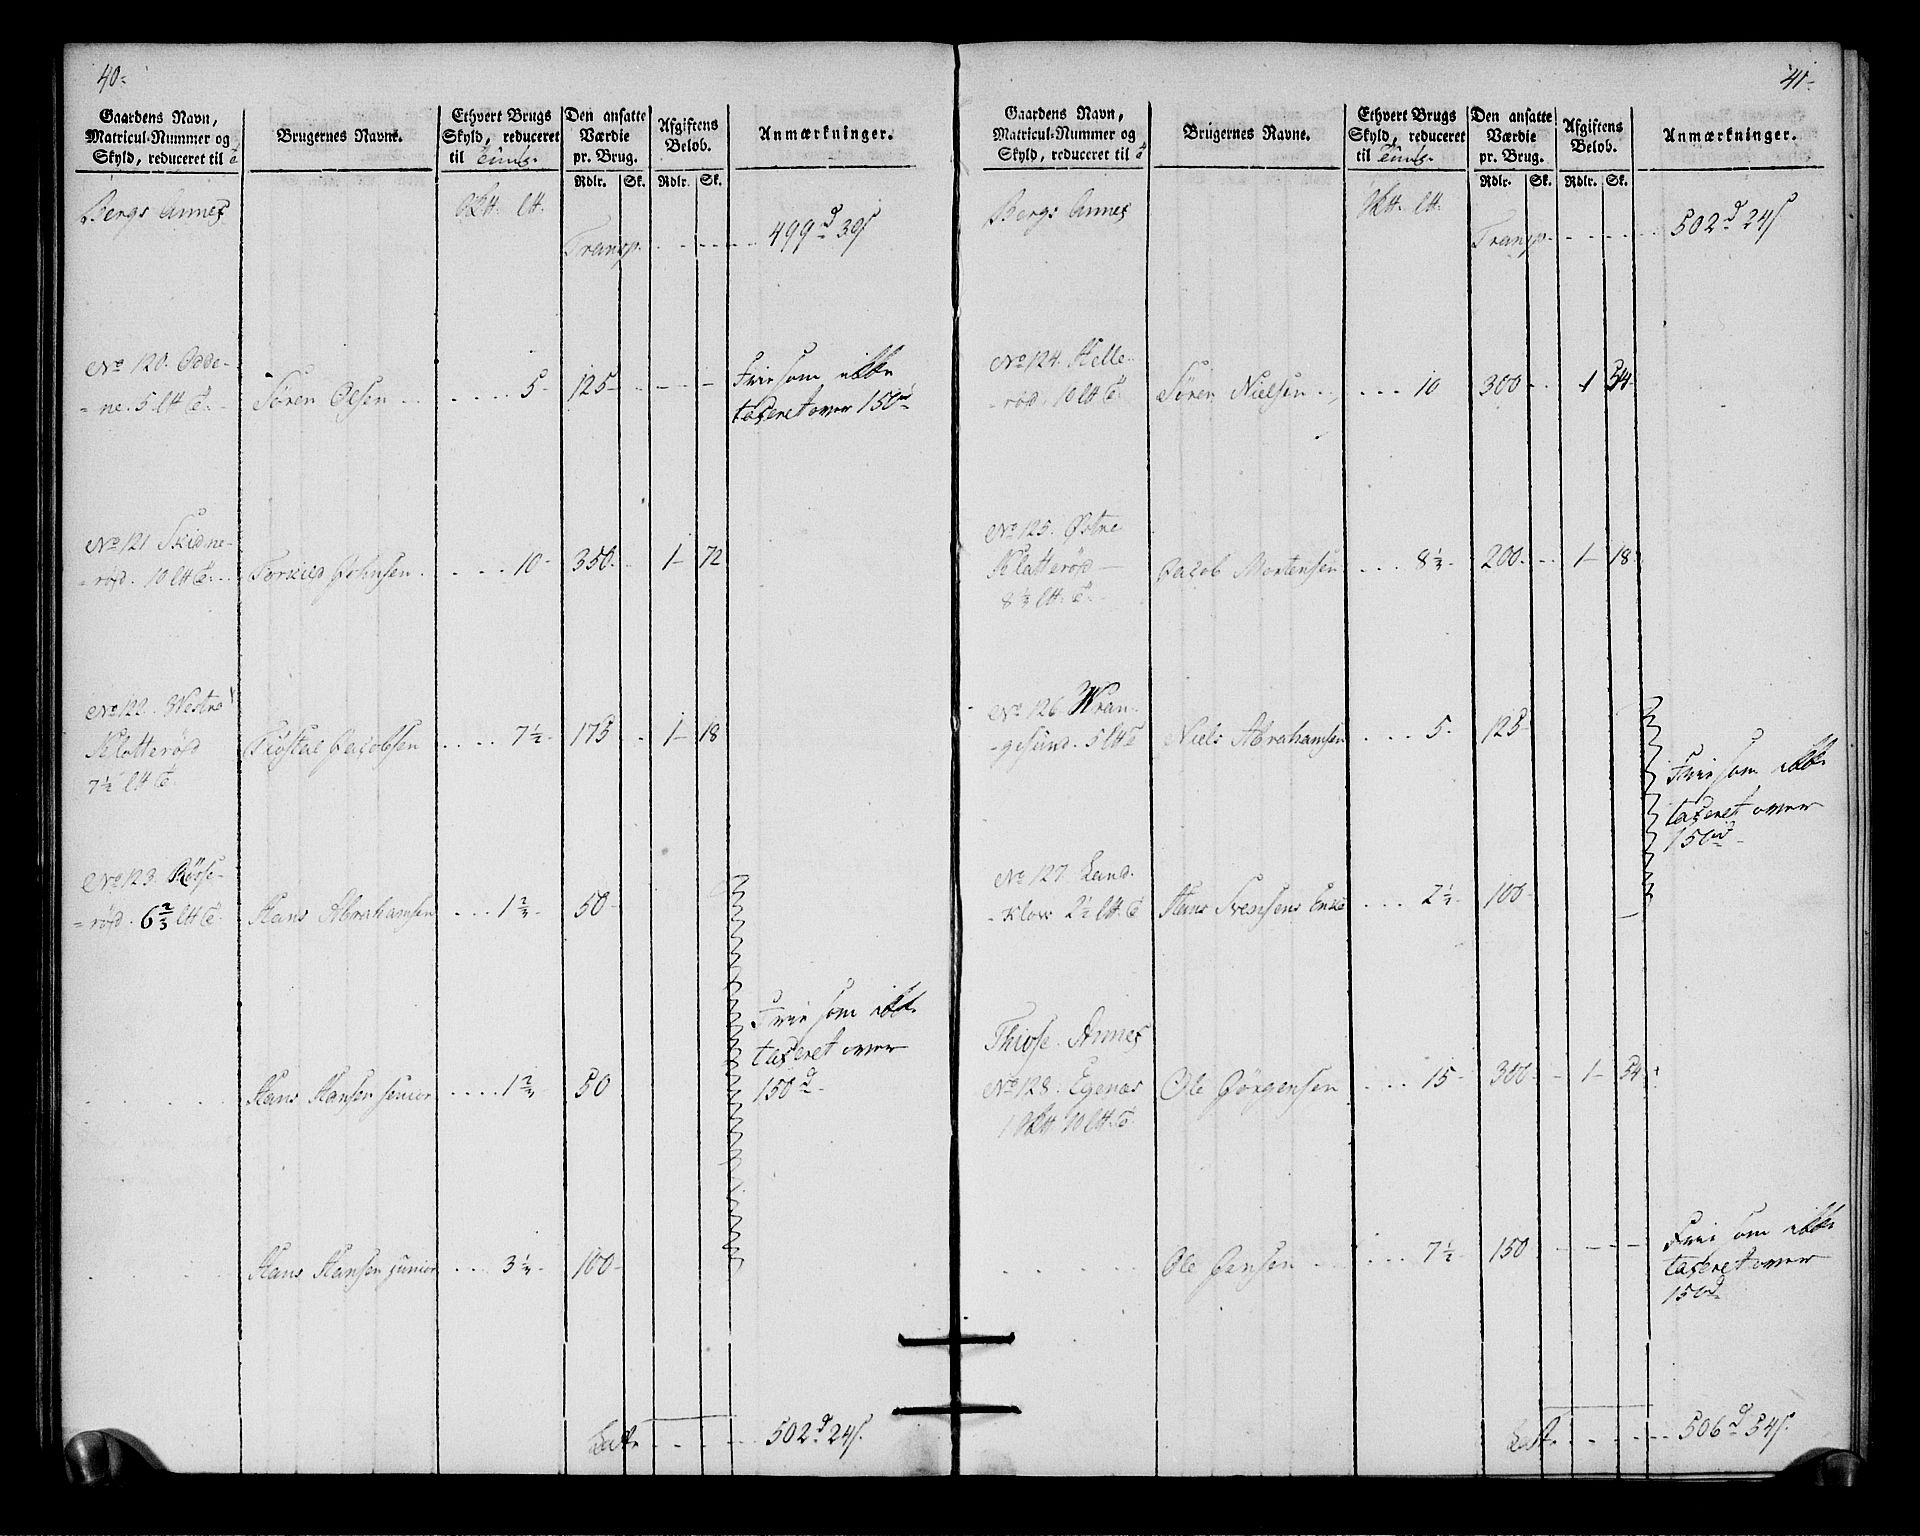 40.
Gaardens Navn,
Matricul-Nummer og
Skyld, reduceret til
Brugernes Navne.
Ethvert Brugs
Skyld, reduceret
til Tunge.
Den ansatte
Værdie
pr. Brug.
Rdlr. Sk.
Afgiftens
Beløb.
Rdlr. Sk.
Anmærkninger.
Bergs Annex
Transp. 499 d 30 s
No 120. Odde-
=ne. 5 Søren Olsen 5 125
Frie som ikke
taxeret over 150 d
No 121 Skidne-
=rød. 10 Torkild Johnsen 10 350 1 72
No 122. Westre
Klatterød Kiøstel Jacobsen 7½ 175 1 18
7½
No 123. Røsse-
=rød. 6⅔ Hans Abrahamsen 1⅔ 50
Hans Hansen senior 1⅔ 50
Frie som ikke
taxeret over
150 d
Hans Hansen junior 3⅓ 100
Lat. 502 d 24 s.
41.
Gaardens Navn,
Matricul-Nummer og
Skyld, reduceret til
Brugernes Navne.
Ethvert Brugs
Skyld, reduceret
til Tunge.
Den ansatte
Værdie
pr. Brug.
Rdlr. Sk.
Afgiftens
Beløb.
Rdlr. Sk.
Anmærkninger.
Bergs Annex
Transp. 502 d 24 s
No 124. Helle-
rød. 10 Søren Nielsen 10 300 1 54
No 125. Østre
Klatterød Jacob Mortensen 8⅓ 200 1 18
8⅓
No 126 Wran-
gesund. 5 Niels Abrahamsen 5 125
Frie som ikke
taxeret over
150 d
No 127. Land-
klov 2½ Hans Svensens Enke 2½ 100
Thiose Annex
No 128. Egenæs Ole Jørgensen 15 300 1 54
1 10
Ole Jensen 7½ 150
Frie som ikke
taxeret over
150 d
Lat. 506 d 54 s.